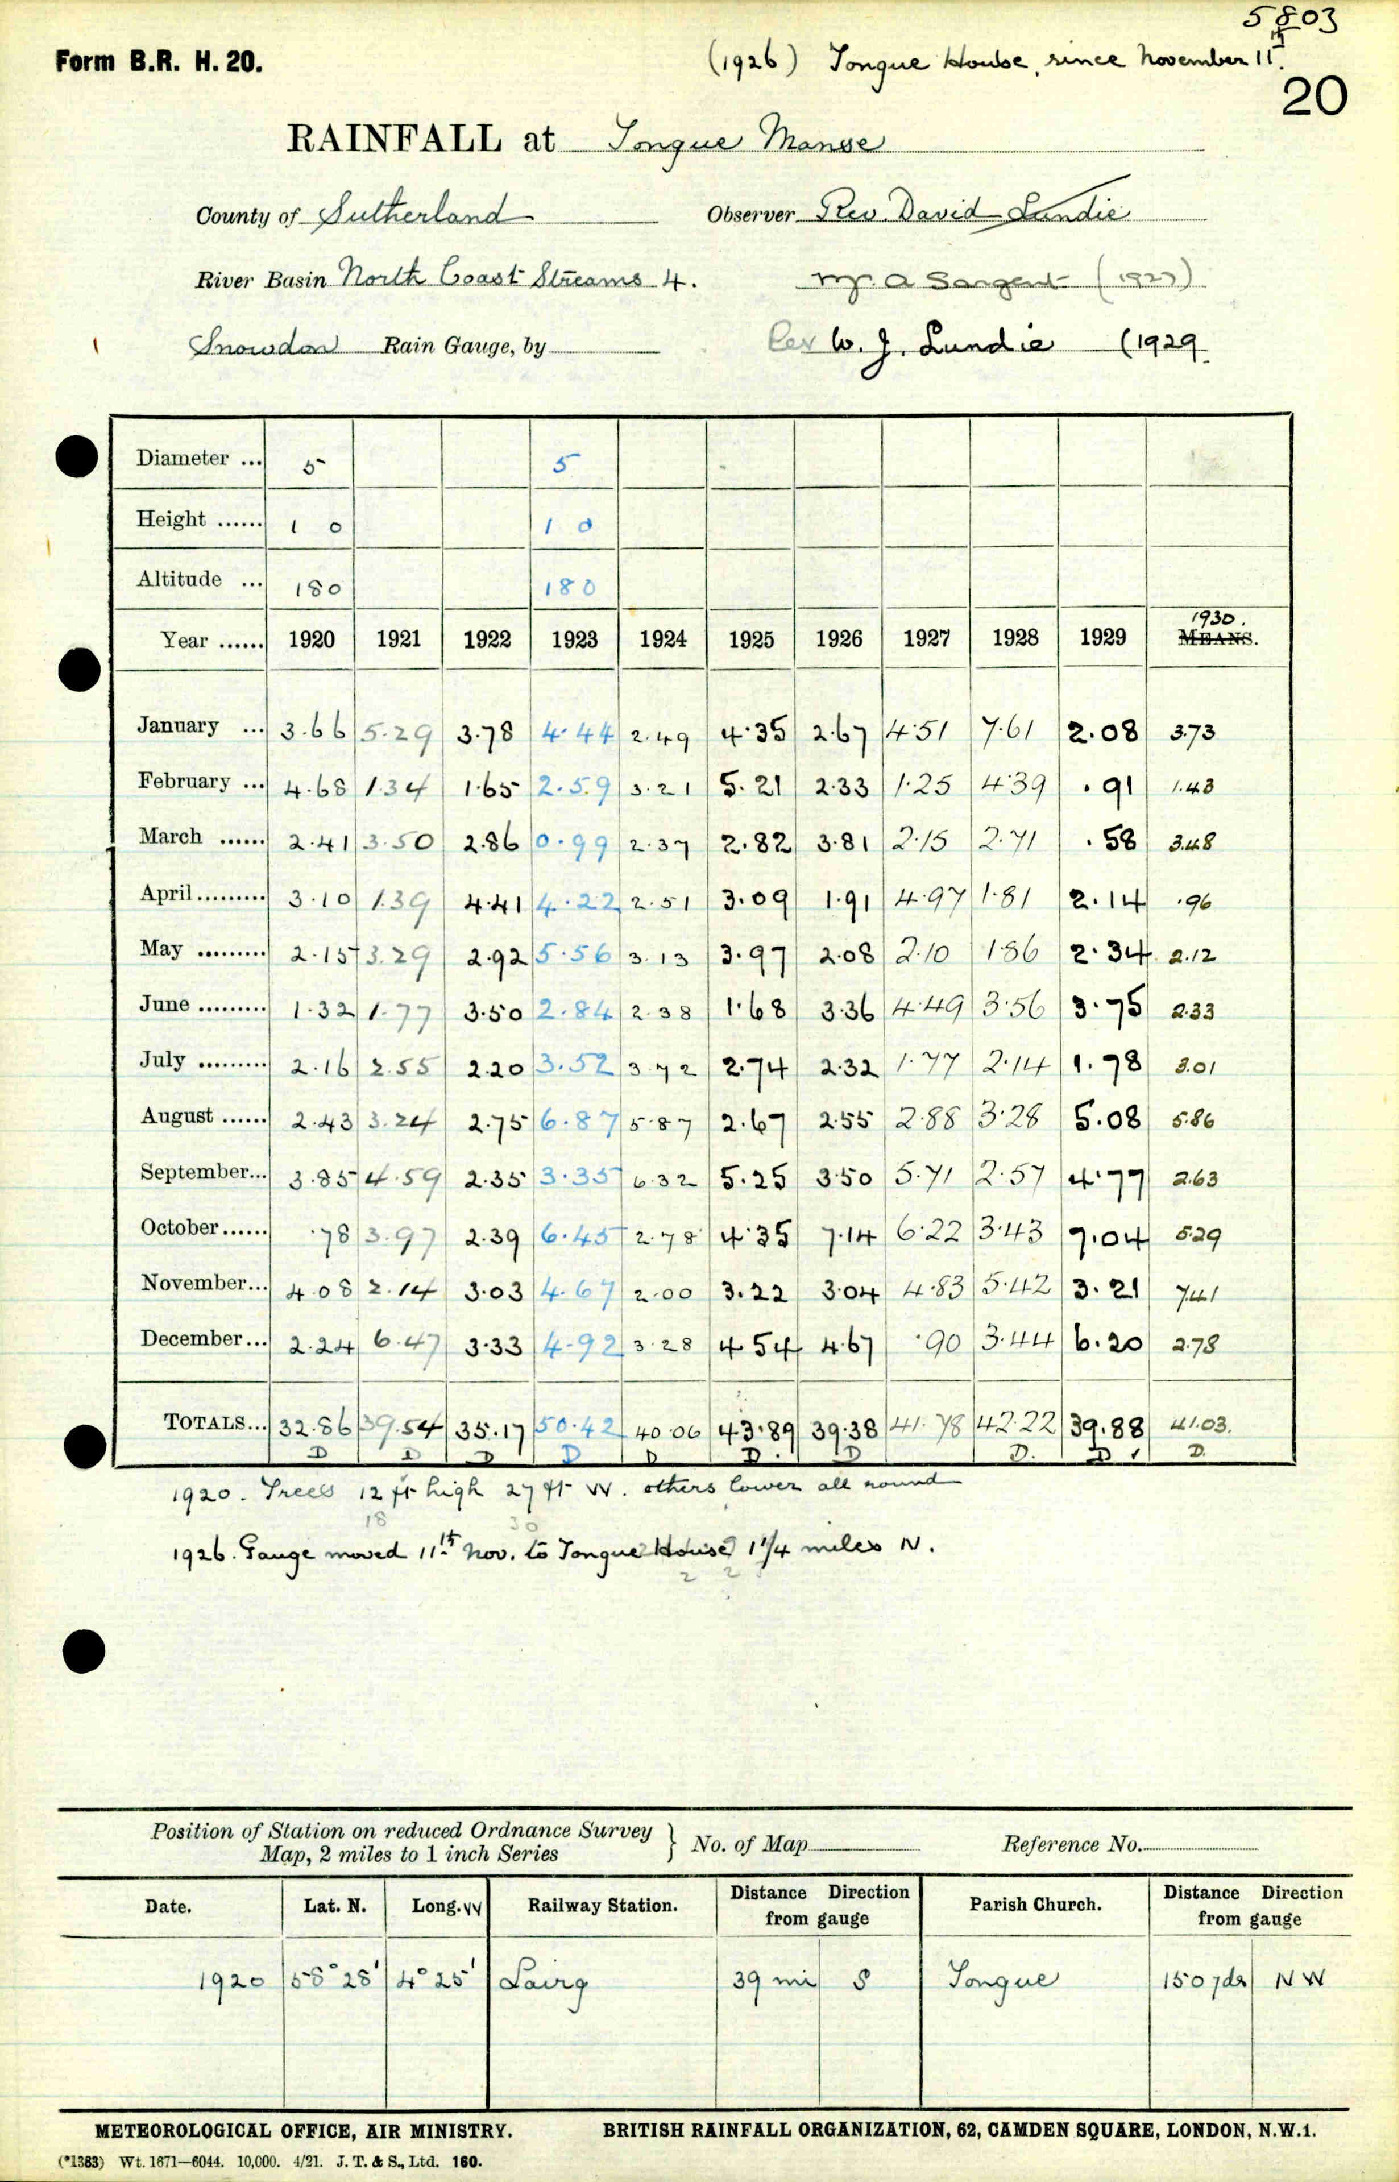 5803
Form B.R. H. 20.
(1926) Tongue House, since November 11th.
20
RAINFALL at Tongue Manse
County of Sutherland Observer Rev. David Lundie
River Basin North Coast Streams 4. Mr. A Sargent (1927)
Snowdon Rain Gauge, by Rev W. J. Lundie (1929
Diameter ... 5 5
Height ...... 1 0 1 0
Altitude ... 180 180
1930.
Year ...... 1920 1921 1922 1923 1924 1925 1926 1927 1928 1929 MEANS.
January ... 3.66 5.29 3.78 4.44 2.49 4.35 2.67 4.51 7.61 2.08 3.73
February ... 4.68 1.34 1.65 2.59 3.21 5.21 2.33 1.25 4.39 .91 1.43
March ...... 2.41 3.50 2.86 0.99 2.37 2.82 3.81 2.15 2.71 .58 3.48
April ......... 3.10 1.39 4.41 4.22 2.51 3.09 1.91 4.97 1.81 2.14 .96
May ......... 2.15 3.29 2.92 5.56 3.13 3.97 2.08 2.10 1.86 2.34 2.12
June ......... 1.32 1.77 3.50 2.84 2.38 1.68 3.36 4.49 3.56 3.75 2.33
July ......... 2.16 2.55 2.20 3.52 3.72 2.74 2.32 1.77 2.14 1.78 3.01
August ...... 2.43 3.24 2.75 6.87 5.87 2.67 2.55 2.88 3.28 5.08 5.86
September... 3.85 4.59 2.35 3.35 6.32 5.25 3.50 5.71 2.57 4.77 2.63
October...... .78 3.97 2.39 6.45 2.78 4.35 7.14 6.22 3.43 7.04 5.29
November... 4.08 2.14 3.03 4.67 2.00 3.22 3.04 4.83 5.42 3.21 7.41
December... 2.24 6.47 3.33 4.92 3.28 4.54 4.67 .90 3.44 6.20 2.78
TOTALS... 32.86 39.54 35.17 50.42 40.06 43.89 39.38 41.78 42.22 39.88 41.03.
D D D D D D. D D. D D.
1920. Trees 12 ft high 27 ft W. others lower all round
18 30
1926. Gauge moved 11th Nov. to Tongue House 1 1/4 miles N.
2 2
Position of Station on reduced Ordnance Survey
Map, 2 miles to 1 inch Series } No. of Map Reference No.
Date. Lat. N. Long. W Railway Station. Distance Direction from gauge Parish Church. Distance Direction from gauge
1920 58° 28' 4° 25' Lairg 39 mi S Tongue 150 yds N W
METEOROLOGICAL OFFICE, AIR MINISTRY. BRITISH RAINFALL ORGANIZATION, 62, CAMDEN SQUARE, LONDON, N.W.1.
(*1383) Wt. 1671—6044. 10,000. 4/21. J. T. & S., Ltd. 160.